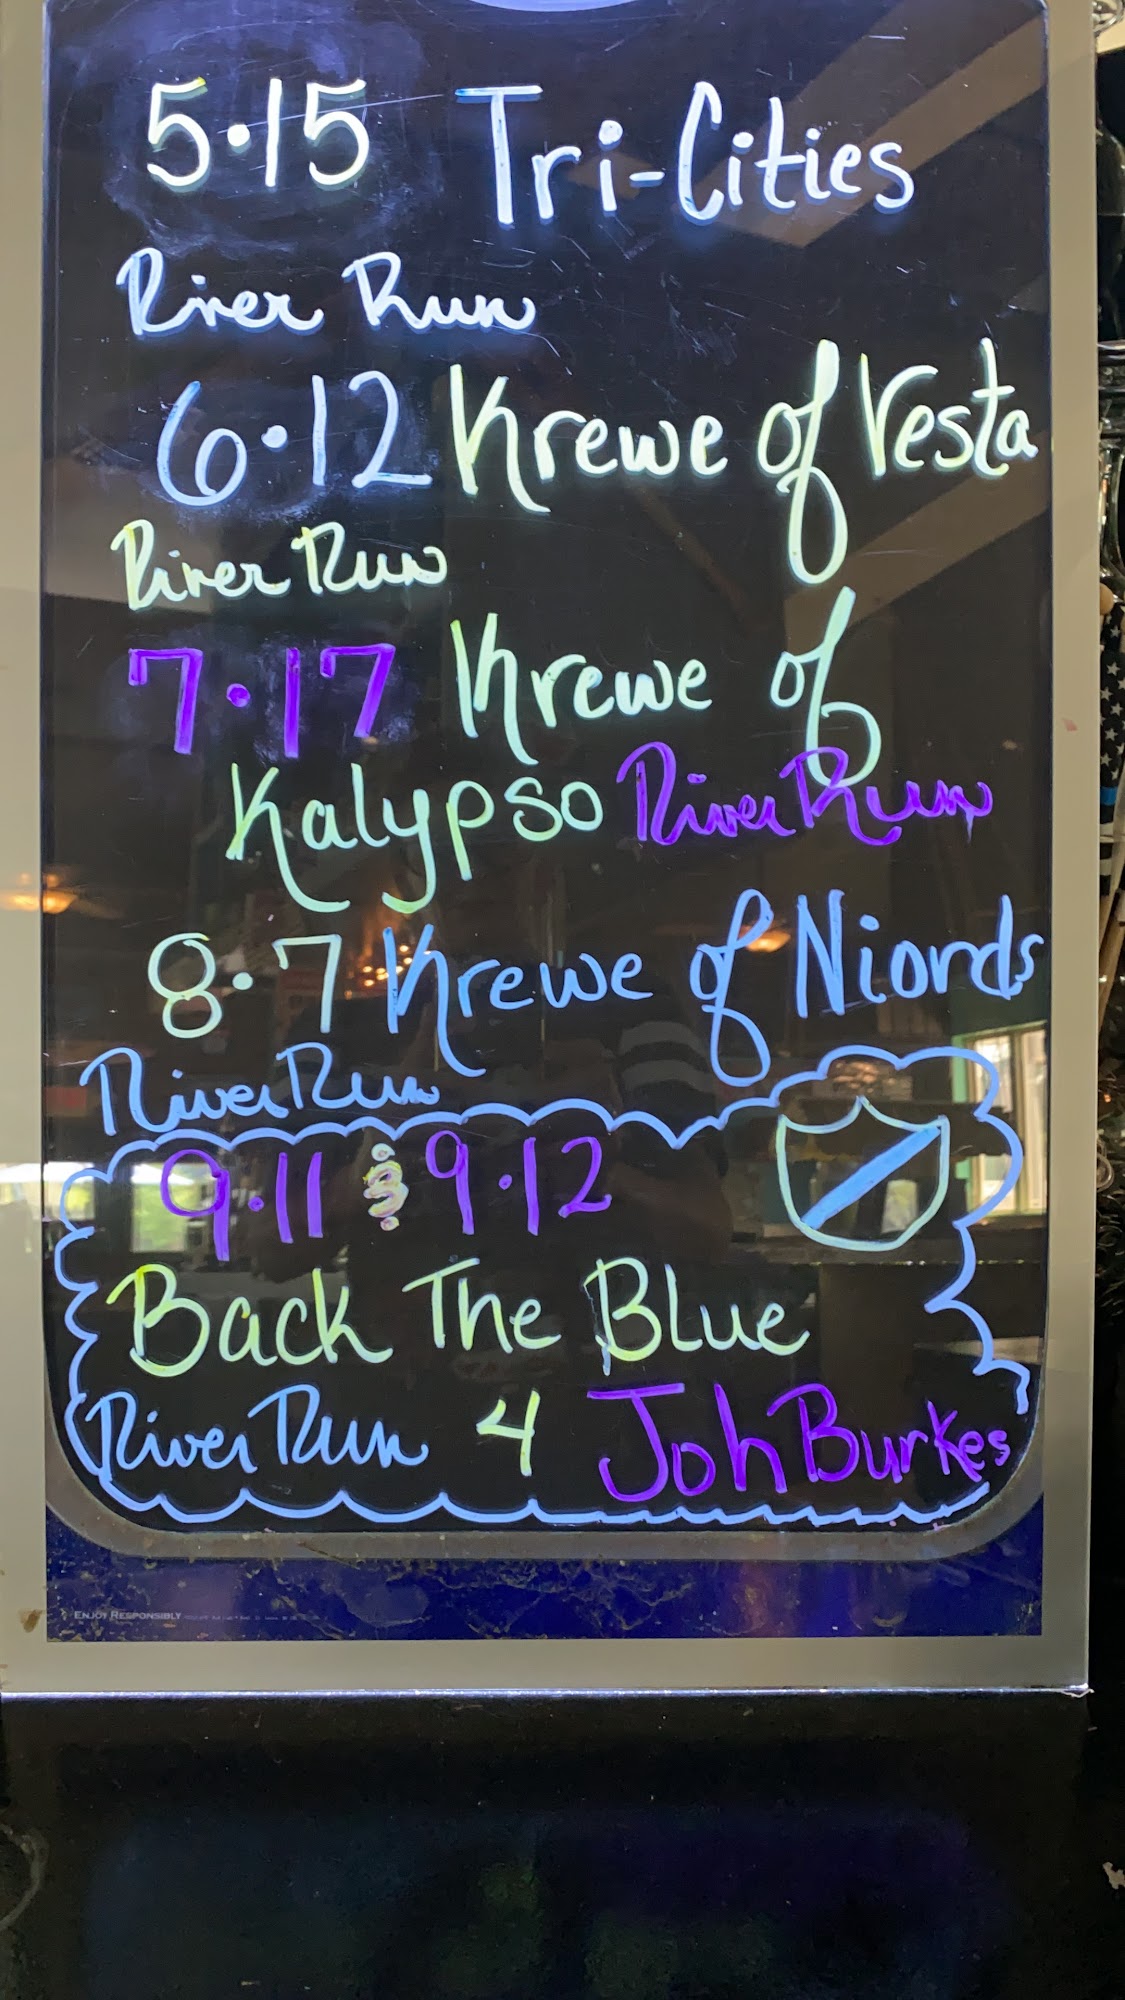 5·15 Tri-Cities
River Run
6·12 Krewe of Vesta
River Run
7·17 Krewe of
Kalypso River Run
8·7 Krewe of Niords
River Run
9·11 & 9·12
Back The Blue
River Run 4 Joh Burkes
ENJOY RESPONSIBLY